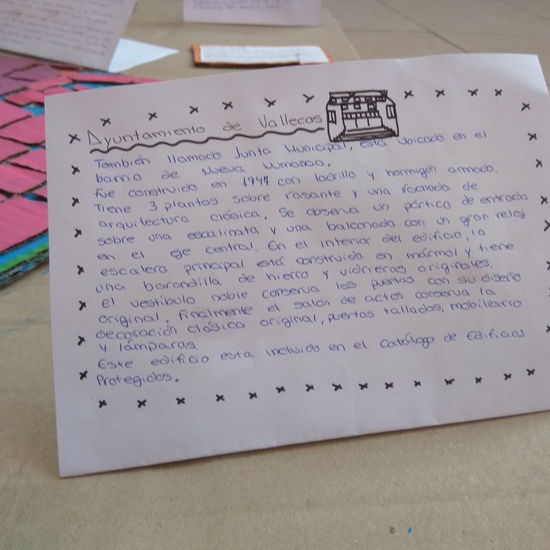 Ayuntamiento de Vallecas
También llamado Junta Municipal, está ubicado en el
barrio de Nueva Numancia.
Fue construido en 1947 con ladrillo y hormigón armado.
Tiene 3 plantas sobre rasante y una fachada de
arquitectura clásica. Se observa un pórtico de entrada
sobre una escalinata y una balconada con un gran reloj
en el eje central. En el interior del edificio, la
escalera principal está construida en mármol y tiene
una barandilla de hierro y vidrieras originales.
El vestíbulo noble conserva las puertas con su diseño
original, finalmente el salón de actos conserva la
decoración clásica original, puertas talladas, mobiliario
y lámparas.
Este edificio esta incluido en el Catálogo de Edificios
Protegidos.